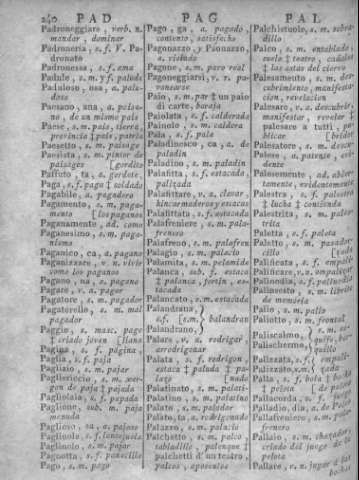 240 PAD
Padroneggiare, verb. n.
mandar, dominar
Padroneria, s. f. V. Pa-
dronato
Padronessa, s. f. ama
Padule, s. m. y f. palude
Paduloso, usa, a. palu-
doso
Paesano, ana, a. paisa-
no, de un mismo pais
Paese, s. m. pais, tierra,
provincia ‡ pais, patria
Paesetto, s. m. paisage
Paesista, s. m. pintor de
paisages [gordito
Paffuto, ta, a. gordete,
Paga, s. f. paga ‡ soldado
Pagabile, a. pagadero
Pagamento, s. m. paga-
mento [los paganos
Paganamente, ad. como
Paganesimo, s. m. paga-
nismo
Paganico, ca, a. pagano
Paganizzare, v. n. vivir
como los paganos
Pagano, na, s. pagano
Pagare, v. a. pagar
Pagatore, s. m. pagador
Pagatorello, s. m. mal
pagador
Paggio, s. masc. page
‡ criado joven [llana
Pagina, s. f. página,
Paglia, s. f. paja
Pagliaio, s. m. pajar
Pagliericcio, s. m. xer-
gon de paja ‡ pajada
Pagliolaia, s. f. papada
Paglione, sub. m. paja
menuda
Paglioso, sa, a. pajoso
Pagliuola, s. f. lantejuela
Pagliuolo, s. m. pajar
Pagnotta, s. f. panecillo
Pago, s. m. pago
PAG
Pago, ga, a. pagado,
contento, satisfecho
Pagonazzo, y Paonazzo,
a. violado
Pagone, s. m. pavo real
Pagoneggiarsi, v. r. pa-
vonearse
Paio, s. m. par ‡ un paio
di carte, baraja
Paiolata, s. f. calderada
Paiuolo, s. m. caldera
Pala, s. f. pala
Paladinesco, ca, a. de
paladin
Paladino, s. m. paladin
Palafitta, s. f. estacada,
palizada
Palafittare, v. a. clavar,
hincar maderos y estacas
Palafittata, s. f. estacada
Palafreniere, s. m. pala-
frenero
Palafreno, s. m. palafren
Palagio, s. m. palacio
Palamita, s. m. pelamide
Palanca, sub. f. estaca
‡ palanca, forjin, es-
tacada
Palancato, s. m. estacada
Palandrana,
s. f. [s. m. balandran
Palandrano,
Palare, v. a. rodrigar,
arrodrigonar
Palata, s. f. rodrigon,
estaca ‡ palada ‡ pa-
lazo [nado
Palatinato, s. m. palati-
Palatino, s. m. palatino
Palato, s. m. paladar
Palato, ta, a. rodrigonado
Palazzo, s. m. palacio
Palchetto, s. m. palco,
tabladillo, palenque ‡
palchetti d'un teatro,
palcos, aposentos
PAL
Palchistuolo, s. m. sobra-
dillo
Palco, s. m. entablado,
suelo ‡ teatro, cadalso
‡ las astas del ciervo
Palesamento, s. m. des-
cubrimiento, manifesta-
cion, revelacion
Palesare, v. a. descubrir,
manifestar, revelar ‡
palesare a tutti, pu-
blicar
Palesatore, s. m. descu-
Palese, a. patente, evi-
dente
Palesemente, ad. abier-
tamente, evidentemente
Palestra, s. f. palestra
‡ lucha ‡ contienda
Palestrita, s. m. pales-
trita
Paletta, s. f. paleta
Paletto, s. m. pasador,
[cillo
Palificata, s. f. empali-
Palificare, v. a. empalizar
Palinodia, s. f. palinodia
Palinsesto, s. m. librillo
de memoria
Palio, s. m. palio
Paliotto, s. m. frontal
Paliscalmo,
Palischermo,
Palizzata, s. f. empali-
Palizzato, s. m. zada
Palla, s. f. bola ‡ bala
‡ pelota [de pelota
Pallacorda, s. f. juego
Palladio, dia, a. de Palas
Pallafreniere, s. m. pala-
frenero
Pallaio, s. m.
criado del juego de la
pelota
Pallare, v. n. jugar